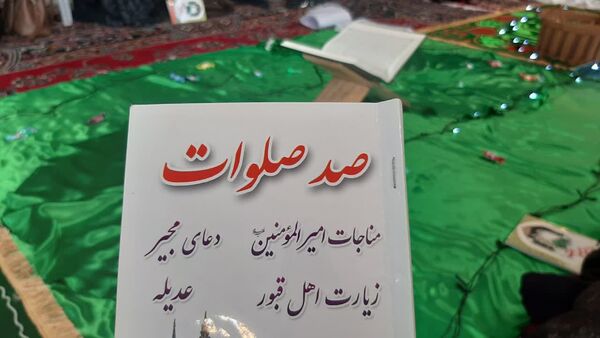 صد صلوات
مناجات امیرالمؤمنین دعای مجیر
زیارت اهل قبور عدیله